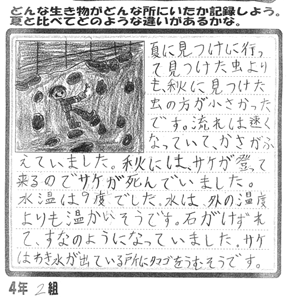 どんな生き物がどんな所にいたか記録しよう。
夏と比べてどのような違いがあるかな。
夏に見つけに行っ
て見つけた虫より
も、秋に見つけた
虫の方が小さかった
です。流れは速く
なっていて、かさがふ
えていました。秋には、サケが登って
来るのでサケが死んでいました。
水温は9度でした。水は、外の温度
よりも温かいそうです。石がけずれ
て、すなのようになっていました。サケ
はわき水が出ている所にタマゴをうむそうです。
4年2組